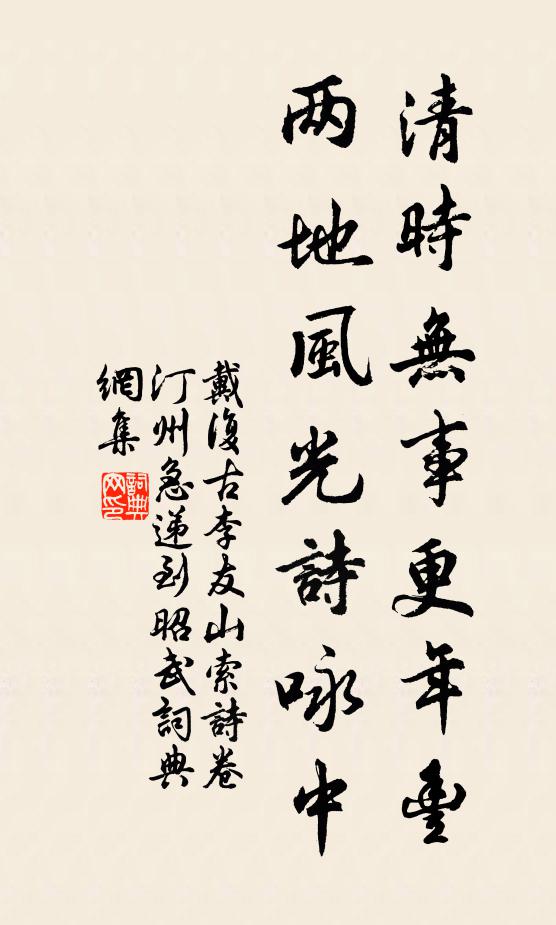 清時無事更年豐
两地風光詩咏中
戴復古李友山索詩卷
汀州急递到昭武詞典
網集
詞典
网印